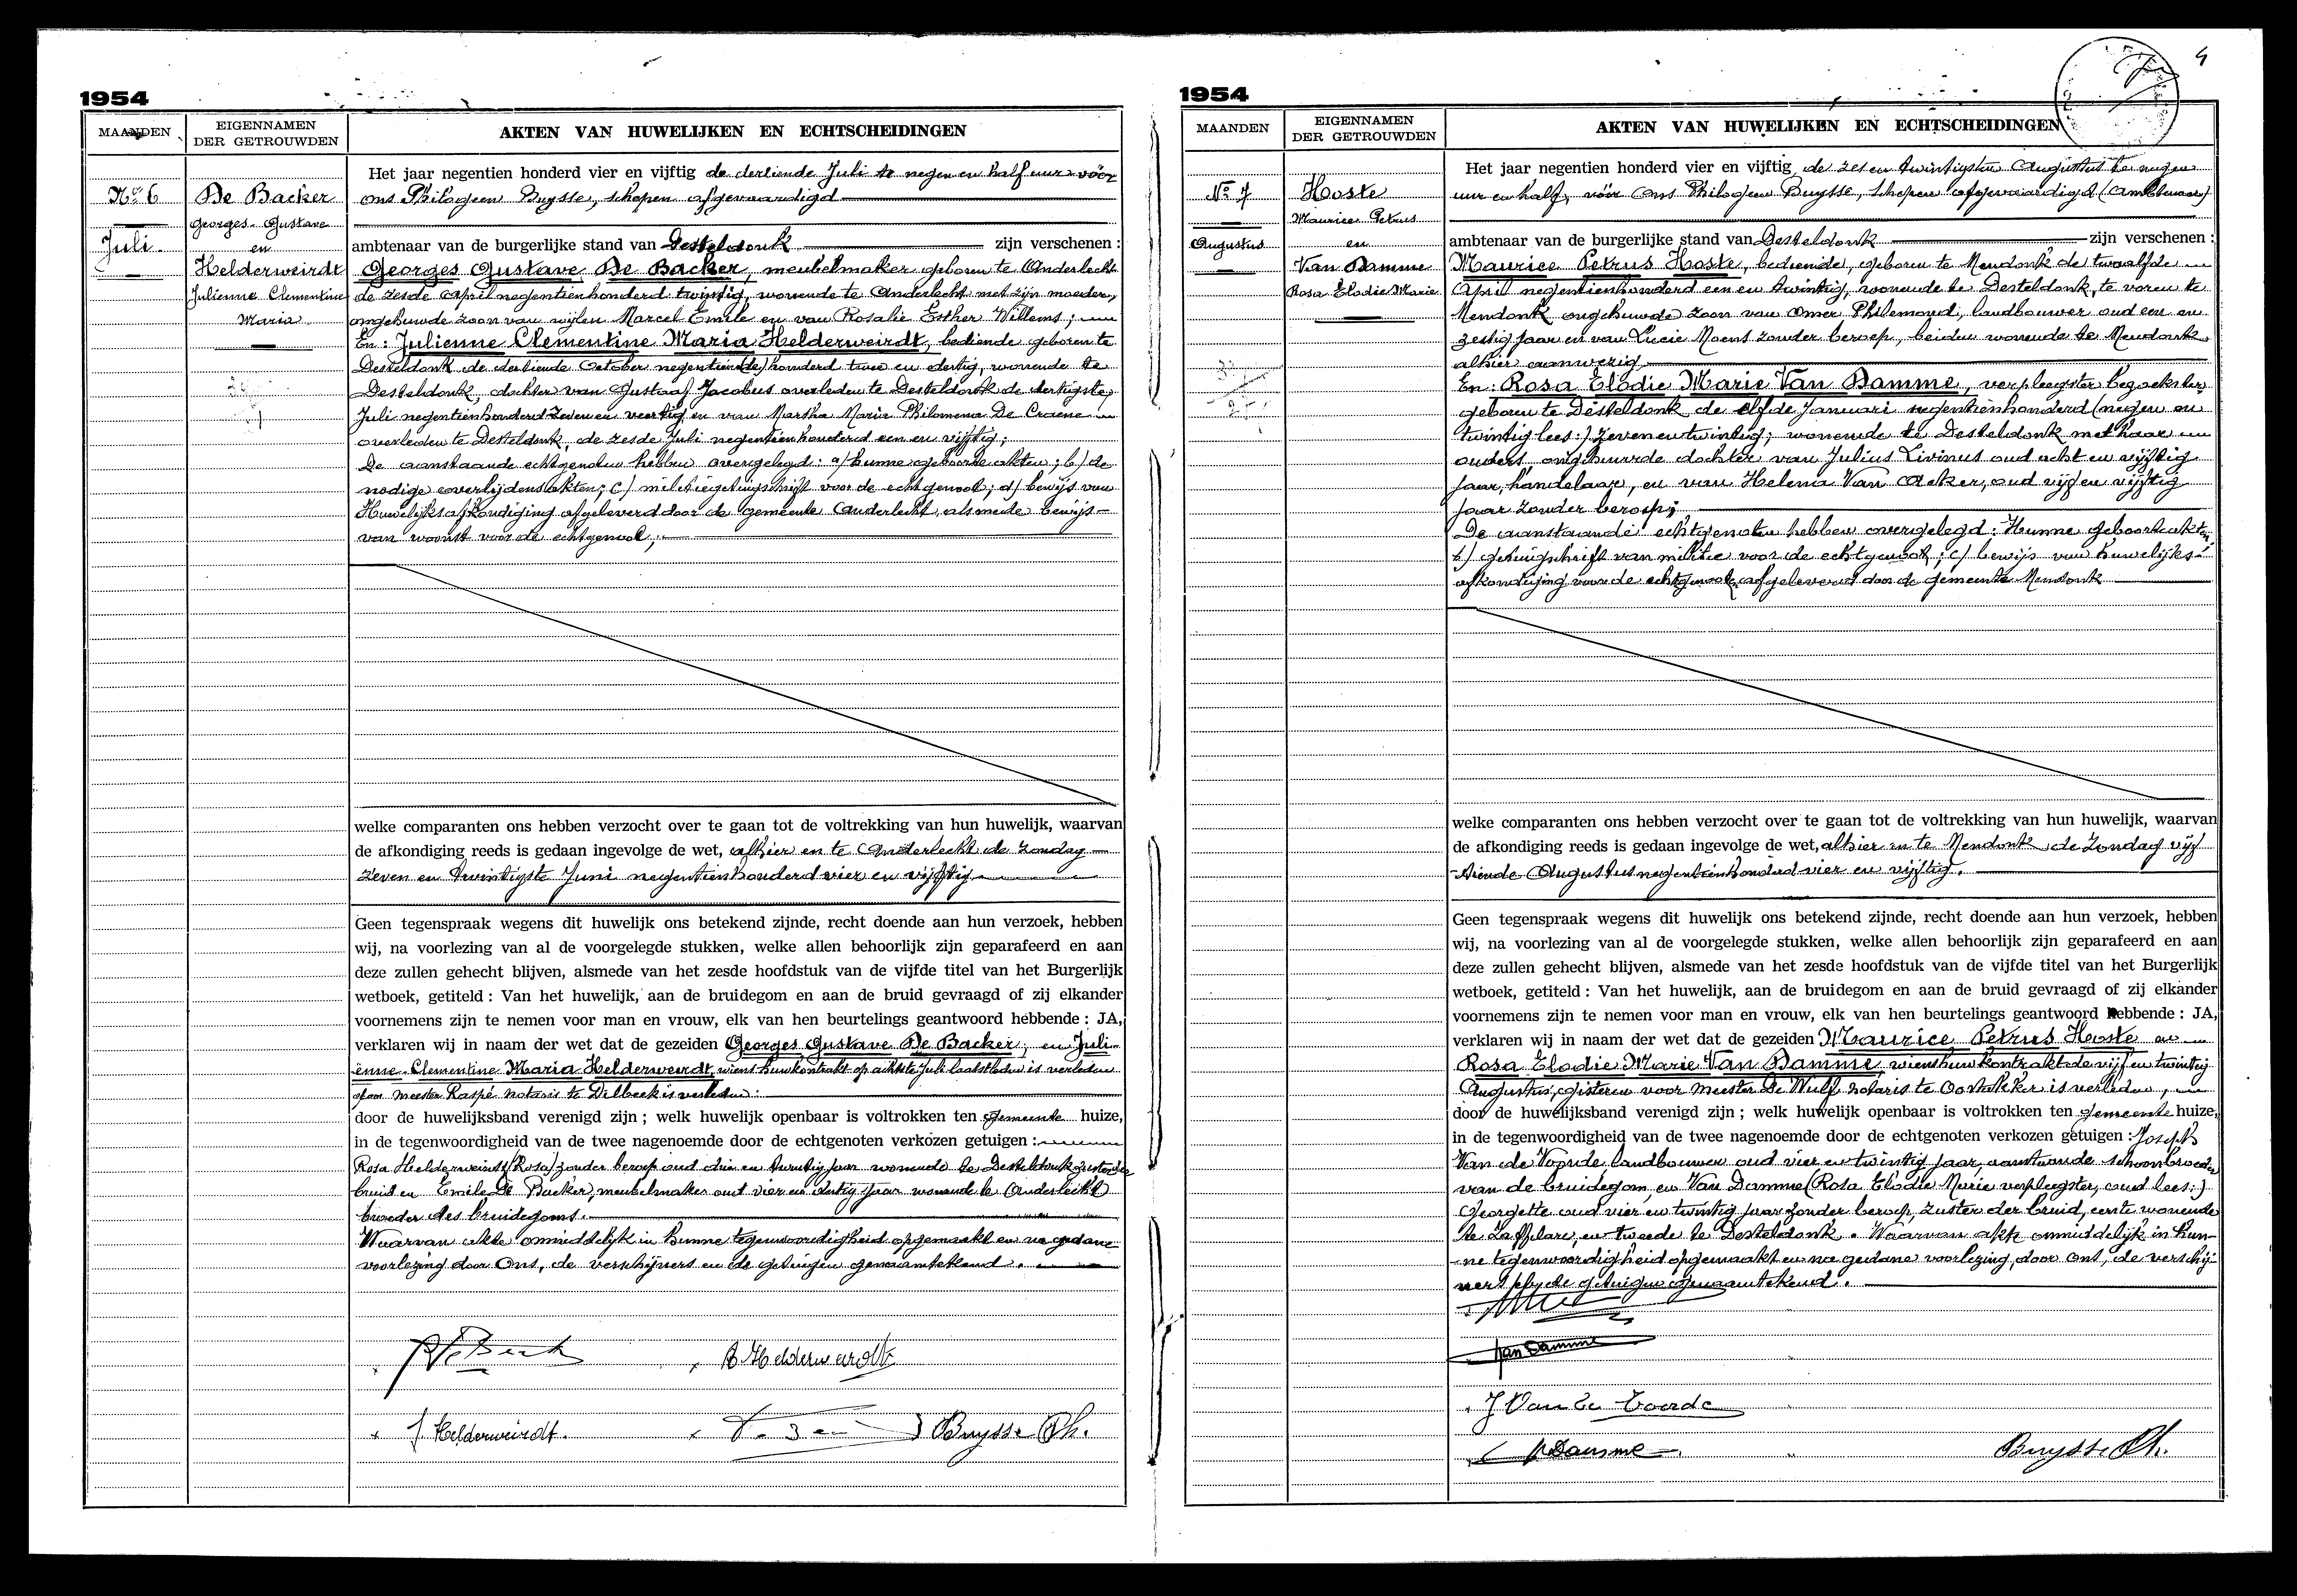 1954
MAANDEN
EIGENNAMEN
DER GETROUWDEN
AKTEN VAN HUWELIJKEN EN ECHTSCHEIDINGEN
No 6
Juli
De Backer
Georges Gustave
en
Helderweirdt
Julienne Clementine
Maria
Het jaar negentien honderd vier en vijftig de dertiende Juli te negen en half uur vóór
ons Philogeen Buysse, schepen afgevaardigd
ambtenaar van de burgerlijke stand van Desteldonk zijn verschenen :
Georges Gustave De Backer, meubelmaker geboren te Anderlecht
de zesde April negentienhonderd twintig, wonende te Anderlecht met zijn moeder,
ongehuwde zoon van wijlen Marcel Emile en van Rosalie Esther Willems ;
En : Julienne Clementine Maria Helderweirdt, bediende geboren te
Desteldonk de dertiende October negentien(de) honderd twee en dertig, wonende te
Desteldonk, dochter van Gustaaf Jacobus overleden te Desteldonk de dertigste
Juli negentienhonderd zeven en veertig en van Martha Maria Philomena De Craene
overleden te Desteldonk de zesde Juli negentienhonderd een en vijftig ;
De aanstaande echtgenoten hebben overgelegd : a/ hunne geboorteakten ; b/ de
nodige overlijdensakten ; c/ militiegetuigschrift voor de echtgenoot ; d/ bewijs van
Huwelijksafkondiging afgeleverd door de gemeente Anderlecht alsmede bewijs
van woonst voor de echtgenoot ;
welke comparanten ons hebben verzocht over te gaan tot de voltrekking van hun huwelijk, waarvan
de afkondiging reeds is gedaan ingevolge de wet, alhier en te Anderlecht de Zondag
zeven en twintigste Juni negentienhonderd vier en vijftig
Geen tegenspraak wegens dit huwelijk ons betekend zijnde, recht doende aan hun verzoek, hebben
wij, na voorlezing van al de voorgelegde stukken, welke allen behoorlijk zijn geparafeerd en aan
deze zullen gehecht blijven, alsmede van het zesde hoofdstuk van de vijfde titel van het Burgerlijk
wetboek, getiteld : Van het huwelijk, aan de bruidegom en aan de bruid gevraagd of zij elkander
voornemens zijn te nemen voor man en vrouw, elk van hen beurtelings geantwoord hebbende : JA,
verklaren wij in naam der wet dat de gezeiden Georges Gustave De Backer, en Juli-
enne Clementine Maria Helderweirdt, wiens huwkontrakt op achtste Juli laatstleden is verleden
door meester Raspé notaris te Dilbeek is verleden :
door de huwelijksband verenigd zijn ; welk huwelijk openbaar is voltrokken ten gemeente huize,
in de tegenwoordigheid van de twee nagenoemde door de echtgenoten verkozen getuigen :
Rosa Helderweirdt (Rosa) zonder beroep oud drie en twintig jaar wonende te Desteldonk zuster der
bruid en Emile De Backer, meubelmaker oud vier en dertig jaar wonende te Anderlecht
broeder des bruidegoms.
Waarvan akte onmiddelijk in hunne tegenwoordigheid opgemaakt en na gedane
voorlezing door Ons, de verschijners en de getuigen genaamtekend.
R Helderweirdt
J. Helderweirdt. Buysse Ph.
1954
4
MAANDEN
EIGENNAMEN
DER GETROUWDEN
AKTEN VAN HUWELIJKEN EN ECHTSCHEIDINGEN
No 7
Augustus
Hoste
Maurice Petrus
en
Van Damme
Rosa Elodie Marie
Het jaar negentien honderd vier en vijftig de zes en twintigsten Augustus te negen
uur en half, vóór Ons Philogeen Buysse, schepen afgevaardigd (ambtenaar)
ambtenaar van de burgerlijke stand van Desteldonk zijn verschenen :
Maurice Petrus Hoste, bediende, geboren te Mendonk de twaalfde
April negentienhonderd een en twintig, wonende te Desteldonk, te voren te
Mendonk ongehuwde zoon van Omer Philemond, landbouwer oud een en
zestig jaar en van Lucie Moens zonder beroep, beiden wonende te Mendonk
alhier aanwezig
En : Rosa Elodie Marie Van Damme, verpleegster bezoekster
geboren te Desteldonk de elfde Januari negentienhonderd (negen en
twintig lees :) zevenentwintig ; wonende te Desteldonk met haar
ouders, ongehuwde dochter van Julius Livinus oud acht en vijftig
jaar, handelaar, en van Helena Van Acker, oud vijf en vijftig
jaar zonder beroep ;
De aanstaande echtgenoten hebben overgelegd : Hunne geboorteakten,
b/ getuigschrift van militie voor de echtgenoot ; c/ bewijs van huwelijks-
afkondiging voor de echtgenoot, afgeleverd door de gemeente Mendonk
welke comparanten ons hebben verzocht over te gaan tot de voltrekking van hun huwelijk, waarvan
de afkondiging reeds is gedaan ingevolge de wet, alhier en te Mendonk, de Zondag vijf
tiende Augustus negentienhonderd vier en vijftig.
Geen tegenspraak wegens dit huwelijk ons betekend zijnde, recht doende aan hun verzoek, hebben
wij, na voorlezing van al de voorgelegde stukken, welke allen behoorlijk zijn geparafeerd en aan
deze zullen gehecht blijven, alsmede van het zesde hoofdstuk van de vijfde titel van het Burgerlijk
wetboek, getiteld : Van het huwelijk, aan de bruidegom en aan de bruid gevraagd of zij elkander
voornemens zijn te nemen voor man en vrouw, elk van hen beurtelings geantwoord hebbende : JA,
verklaren wij in naam der wet dat de gezeiden Maurice Petrus Hoste en
Rosa Elodie Marie Van Damme, wiens huwkontrakt de vijf en twintig
Augustus, gisteren voor meester De Wulf notaris te Oostakker is verleden,
door de huwelijksband verenigd zijn ; welk huwelijk openbaar is voltrokken ten gemeente huize,
in de tegenwoordigheid van de twee nagenoemde door de echtgenoten verkozen getuigen : Joseph
Van de Voorde, landbouwer oud vier en twintig jaar, aanstaande schoonbroeder
van de bruidegom, en Van Damme (Rosa Elodie Marie verpleegster, oud lees :)
Georgette oud vier en twintig jaar zonder beroep, zuster der bruid, eerste wonende
te Zaffelare, en tweede te Desteldonk. Waarvan akte onmiddelijk in hun-
ne tegenwoordigheid opgemaakt en na gedane voorlezing, door Ons, de verschij-
ners de getuigen genaamtekend.
Van Damme
J Van de Voorde
Damme
Buysse Ph.